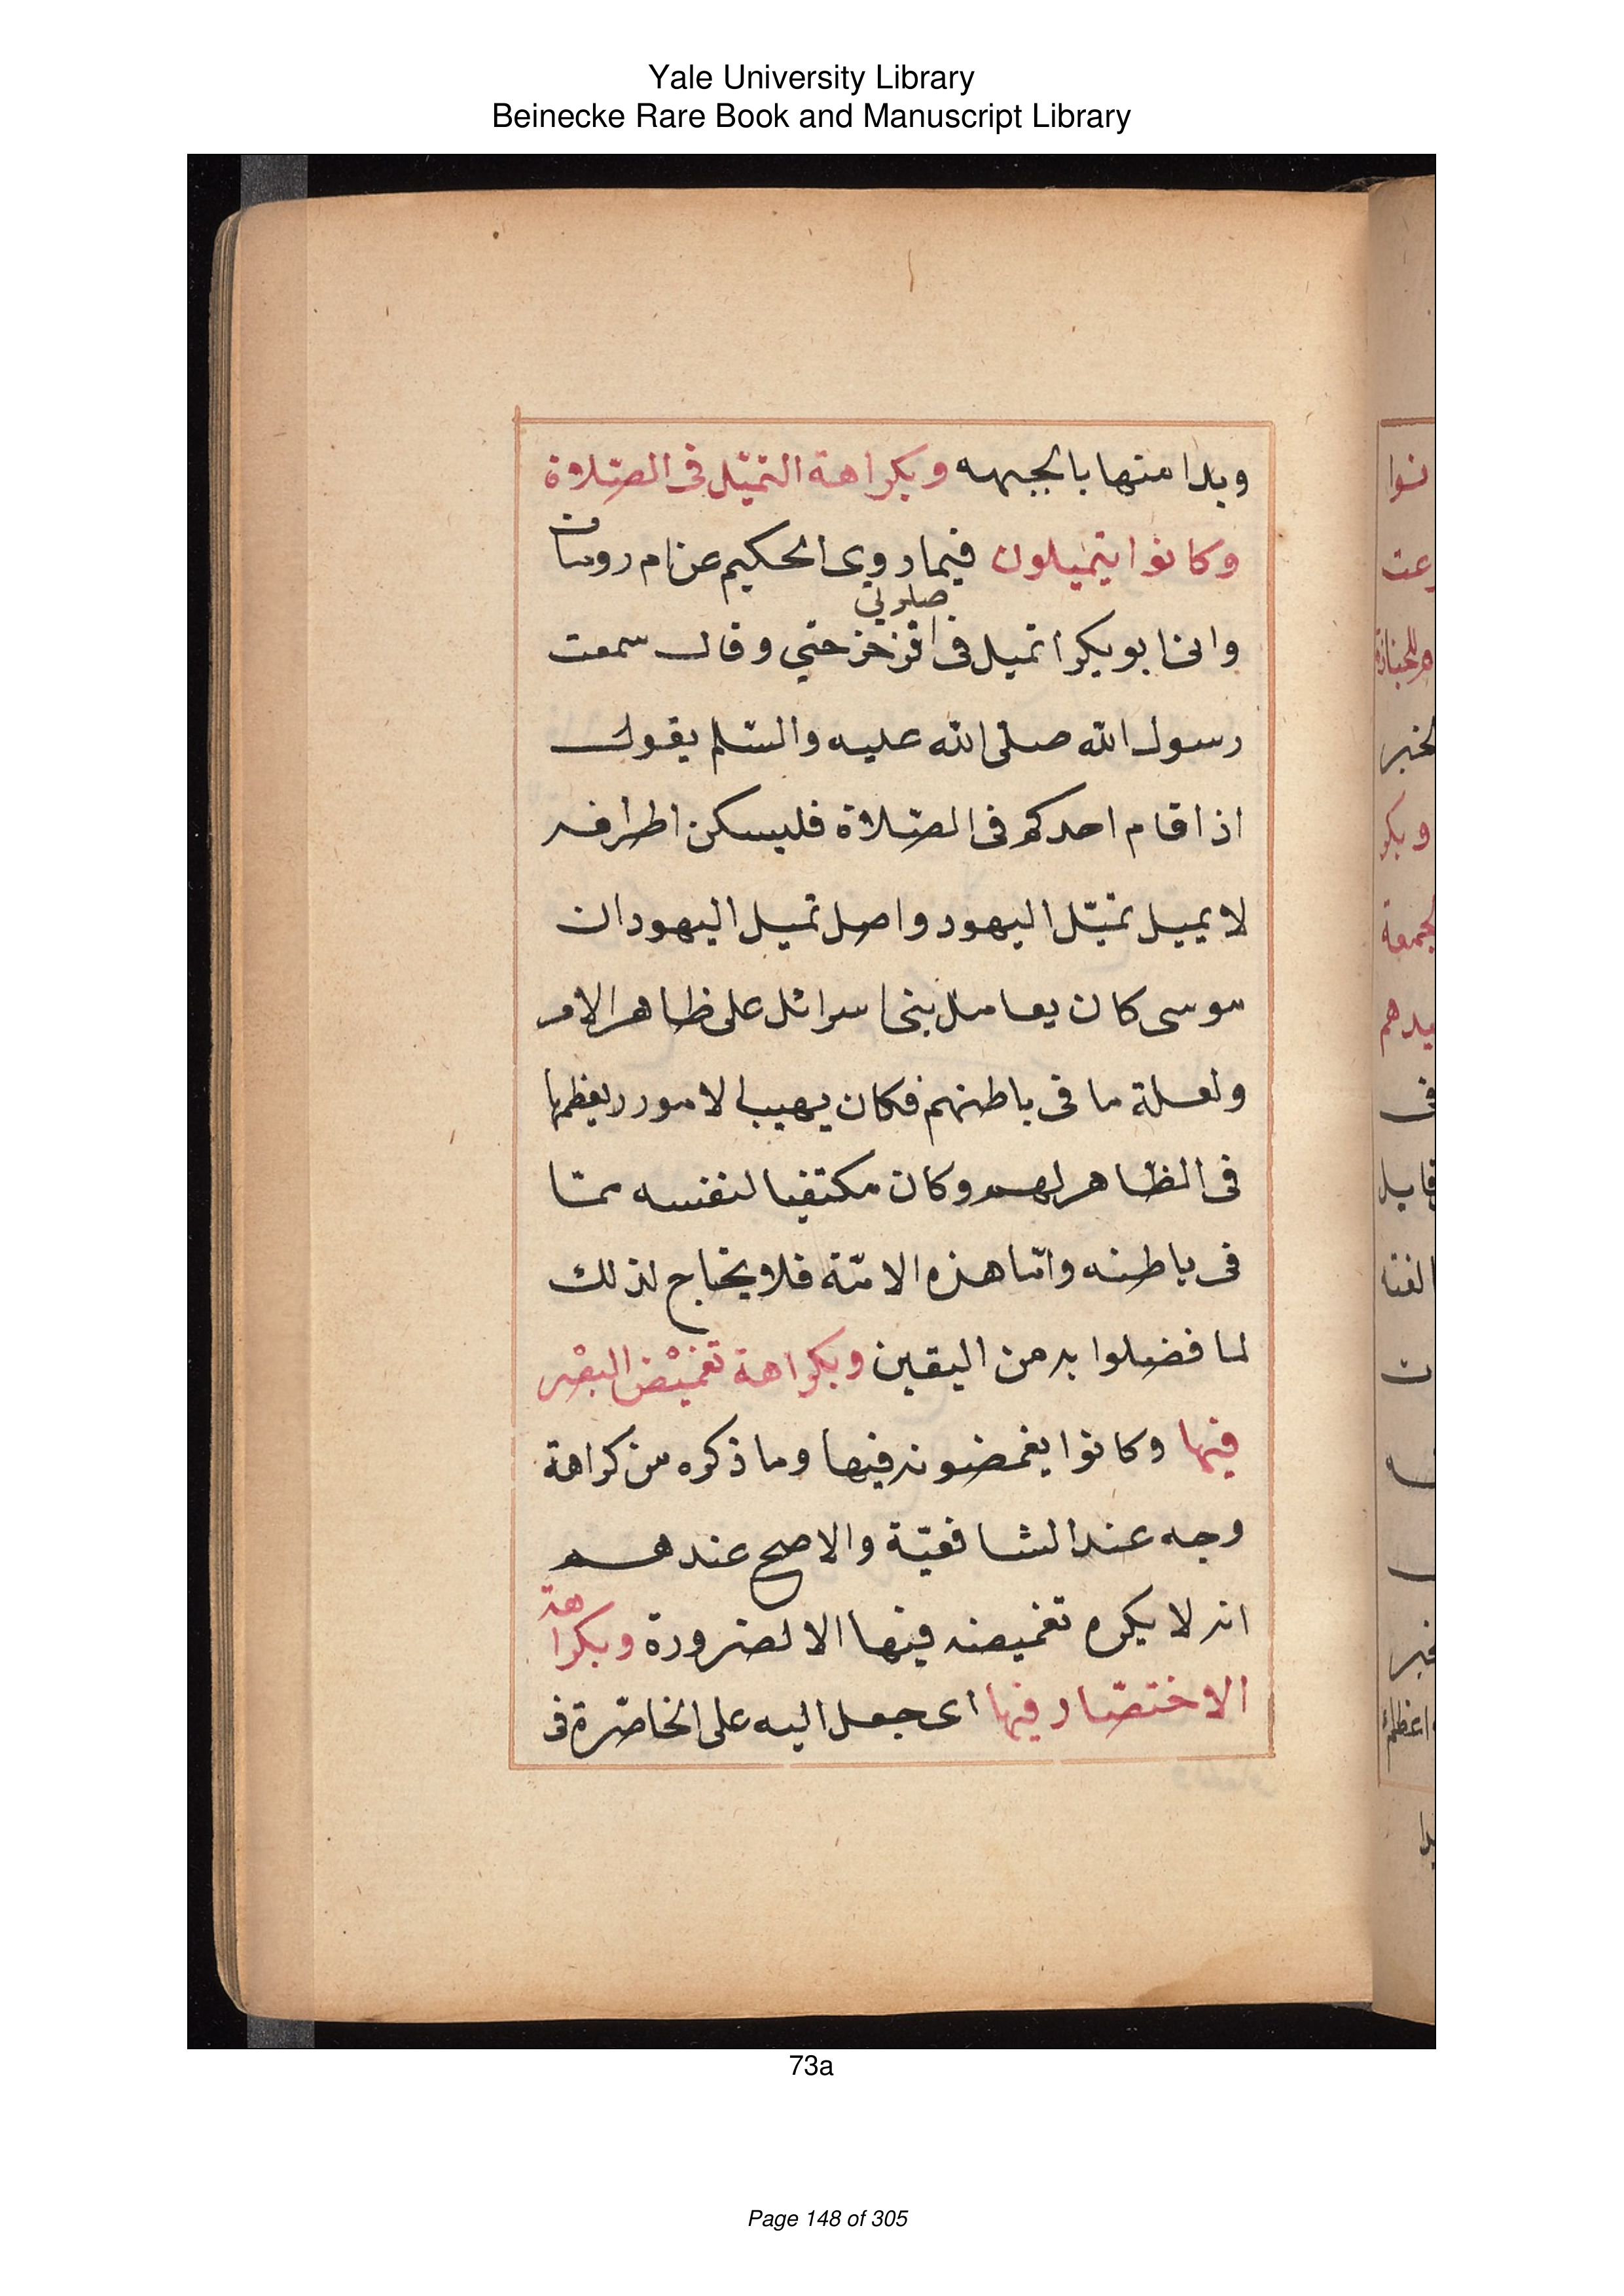 Yale University Library
Beinecke Rare Book and Manuscript Library
وبدا منها بالجبهه وبكراهة التميّل فى الصّلاة
وكانوا يتميلون فيما روى الحكيم عن ام رومان
وانى ابو بكر اتميل فى صلوتى فزخز حتي وقال سمعت
رسول الله صلى الله عليه والسّلم يقول
اذا قام احدكم فى الصّلاة فليسكن اطرافه
لا يميل تميّل اليهود واصل تميل اليهود ان
موسى كان يعامل بنى اسرائل على ظاهر الامر
ولعلة ما فى باطنهم فكان يهيب الامور ريعظمها
فى الظاهر لهم وكان مكتفيا لنفسه ممّا
فى باطنه وامّا هذه الامّة فلا يحتاج لذلك
لما فضلوا به من اليقين وبكراهة تغميْض البصْر
فيها وكانوا يغمضونه فيها وما ذكره من كراهة
وجه عند الشافعيّة والاصح عندهم
انه لا يكره تغميضه فيها الا لضرورة وبكراهة
الاختصّار فيها اى جعل اليه على الخاصّرة فى
73a
Page 148 of 305